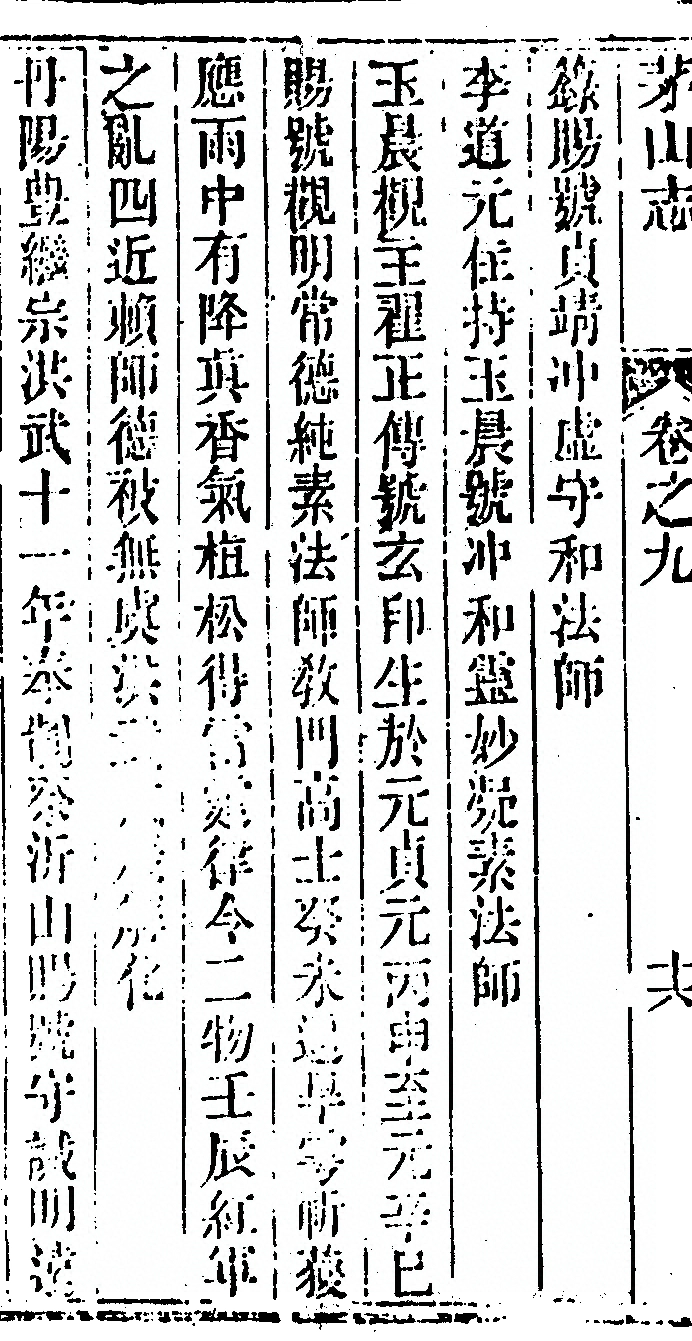 茅山志 卷之九 十六
錄賜號貞靖冲虛守和法師
李道元住持玉晨號冲和靈妙凝素法師
玉晨觀主翟正傳號玄印生於元貞元丙申至元辛巳
賜號觀明常德純素法師教門高士癸未遇旱雩祈獲
應雨中有降真香氣植松得當律今二物壬辰紅軍
之亂四近賴師德被無虞洪武化
丹陽豊繼宗洪武十一年奉制祭沂山賜號守誠明達